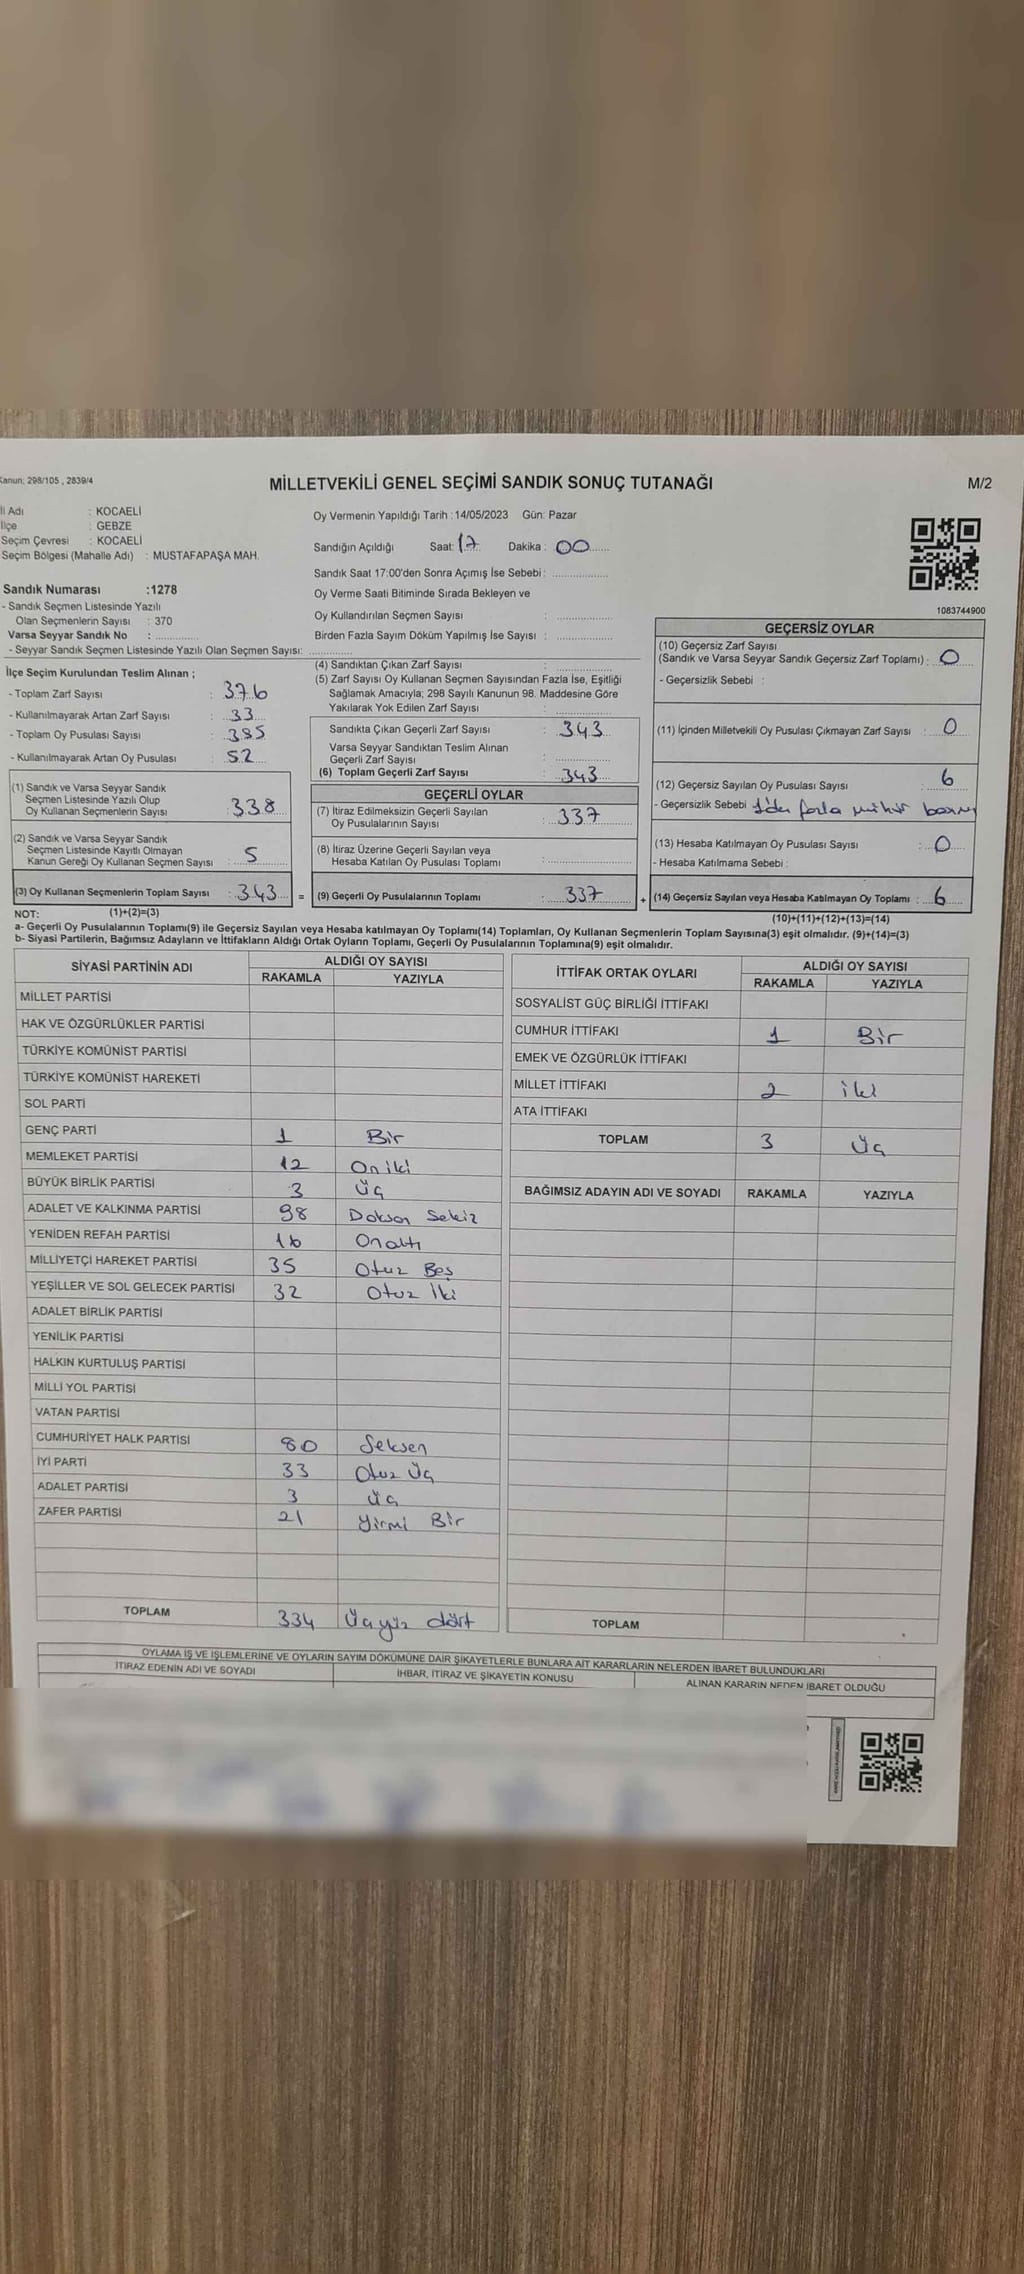 Kanun; 298/105 , 2839/4
MİLLETVEKİLİ GENEL SEÇİMİ SANDIK SONUÇ TUTANAĞI
M/2
İl Adı : KOCAELİ
İlçe : GEBZE
Seçim Çevresi : KOCAELİ
Seçim Bölgesi (Mahalle Adı) : MUSTAFAPAŞA MAH.
Sandık Numarası :1278
- Sandık Seçmen Listesinde Yazılı
Olan Seçmenlerin Sayısı : 370
Varsa Seyyar Sandık No : ..............
- Seyyar Sandık Seçmen Listesinde Yazılı Olan Seçmen Sayısı: ..............
Oy Vermenin Yapıldığı Tarih :14/05/2023 Gün: Pazar
Sandığın Açıldığı Saat: 17 Dakika : 00
Sandık Saat 17:00'den Sonra Açımış İse Sebebi : ..................
Oy Verme Saati Bitiminde Sırada Bekleyen ve
Oy Kullandırılan Seçmen Sayısı : ..................
Birden Fazla Sayım Döküm Yapılmış İse Sayısı : ..................
1083744900
İlçe Seçim Kurulundan Teslim Alınan ;
- Toplam Zarf Sayısı : 376
- Kullanılmayarak Artan Zarf Sayısı : 33
- Toplam Oy Pusulası Sayısı : 385
- Kullanılmayarak Artan Oy Pusulası : 52
(1) Sandık ve Varsa Seyyar Sandık
Seçmen Listesinde Yazılı Olup
Oy Kullanan Seçmenlerin Sayısı : 338
(2) Sandık ve Varsa Seyyar Sandık
Seçmen Listesinde Kayıtlı Olmayan
Kanun Gereği Oy Kullanan Seçmen Sayısı : 5
(3) Oy Kullanan Seçmenlerin Toplam Sayısı : 343 =
(4) Sandıktan Çıkan Zarf Sayısı : ..................
(5) Zarf Sayısı Oy Kullanan Seçmen Sayısından Fazla İse, Eşitliği
Sağlamak Amacıyla; 298 Sayılı Kanunun 98. Maddesine Göre
Yakılarak Yok Edilen Zarf Sayısı : ..................
Sandıkta Çıkan Geçerli Zarf Sayısı : 343
Varsa Seyyar Sandıktan Teslim Alınan
Geçerli Zarf Sayısı : ..................
(6) Toplam Geçerli Zarf Sayısı : 343
GEÇERLİ OYLAR
(7) İtiraz Edilmeksizin Geçerli Sayılan
Oy Pusulalarının Sayısı : 337
(8) İtiraz Üzerine Geçerli Sayılan veya
Hesaba Katılan Oy Pusulası Toplamı : ..................
(9) Geçerli Oy Pusulalarının Toplamı : 337 +
GEÇERSİZ OYLAR
(10) Geçersiz Zarf Sayısı
(Sandık ve Varsa Seyyar Sandık Geçersiz Zarf Toplamı) : 0
- Geçersizlik Sebebi :
(11) İçinden Milletvekili Oy Pusulası Çıkmayan Zarf Sayısı : 0
(12) Geçersiz Sayılan Oy Pusulası Sayısı : 6
- Geçersizlik Sebebi 1'den fazla mühür
(13) Hesaba Katılmayan Oy Pusulası Sayısı : 0
- Hesaba Katılmama Sebebi :
(14) Geçersiz Sayılan veya Hesaba Katılmayan Oy Toplamı : 6
NOT: (1)+(2)=(3)
(10)+(11)+(12)+(13)=(14)
a- Geçerli Oy Pusulalarının Toplamı(9) ile Geçersiz Sayılan veya Hesaba katılmayan Oy Toplamı(14) Toplamları, Oy Kullanan Seçmenlerin Toplam Sayısına(3) eşit olmalıdır. (9)+(14)=(3)
b- Siyasi Partilerin, Bağımsız Adayların ve İttifakların Aldığı Ortak Oyların Toplamı, Geçerli Oy Pusulalarının Toplamına(9) eşit olmalıdır.
SİYASİ PARTİNİN ADI ALDIĞI OY SAYISI
RAKAMLA YAZIYLA
MİLLET PARTİSİ
HAK VE ÖZGÜRLÜKLER PARTİSİ
TÜRKİYE KOMÜNİST PARTİSİ
TÜRKİYE KOMÜNİST HAREKETİ
SOL PARTİ
GENÇ PARTİ 1 Bir
MEMLEKET PARTİSİ 12 On iki
BÜYÜK BİRLİK PARTİSİ 3 Üç
ADALET VE KALKINMA PARTİSİ 98 Doksan Sekiz
YENİDEN REFAH PARTİSİ 16 Onaltı
MİLLİYETÇİ HAREKET PARTİSİ 35 Otuz Beş
YEŞİLLER VE SOL GELECEK PARTİSİ 32 Otuz İki
ADALET BİRLİK PARTİSİ
YENİLİK PARTİSİ
HALKIN KURTULUŞ PARTİSİ
MİLLİ YOL PARTİSİ
VATAN PARTİSİ
CUMHURİYET HALK PARTİSİ 80 Seksen
İYİ PARTİ 33 Otuz Üç
ADALET PARTİSİ 3 Üç
ZAFER PARTİSİ 21 Yirmi Bir
TOPLAM 334 Üçyüz dört
İTTİFAK ORTAK OYLARI ALDIĞI OY SAYISI
RAKAMLA YAZIYLA
SOSYALİST GÜÇ BİRLİĞİ İTTİFAKI
CUMHUR İTTİFAKI 1 Bir
EMEK VE ÖZGÜRLÜK İTTİFAKI
MİLLET İTTİFAKI 2 iki
ATA İTTİFAKI
TOPLAM 3 Üç
BAĞIMSIZ ADAYIN ADI VE SOYADI RAKAMLA YAZIYLA
TOPLAM
OYLAMA İŞ VE İŞLEMLERİNE VE OYLARIN SAYIM DÖKÜMÜNE DAİR ŞİKAYETLERLE BUNLARA AİT KARARLARIN NELERDEN İBARET BULUNDUKLARI
İTİRAZ EDENİN ADI VE SOYADI İHBAR, İTİRAZ VE ŞİKAYETİN KONUSU ALINAN KARARIN NEDEN İBARET OLDUĞU